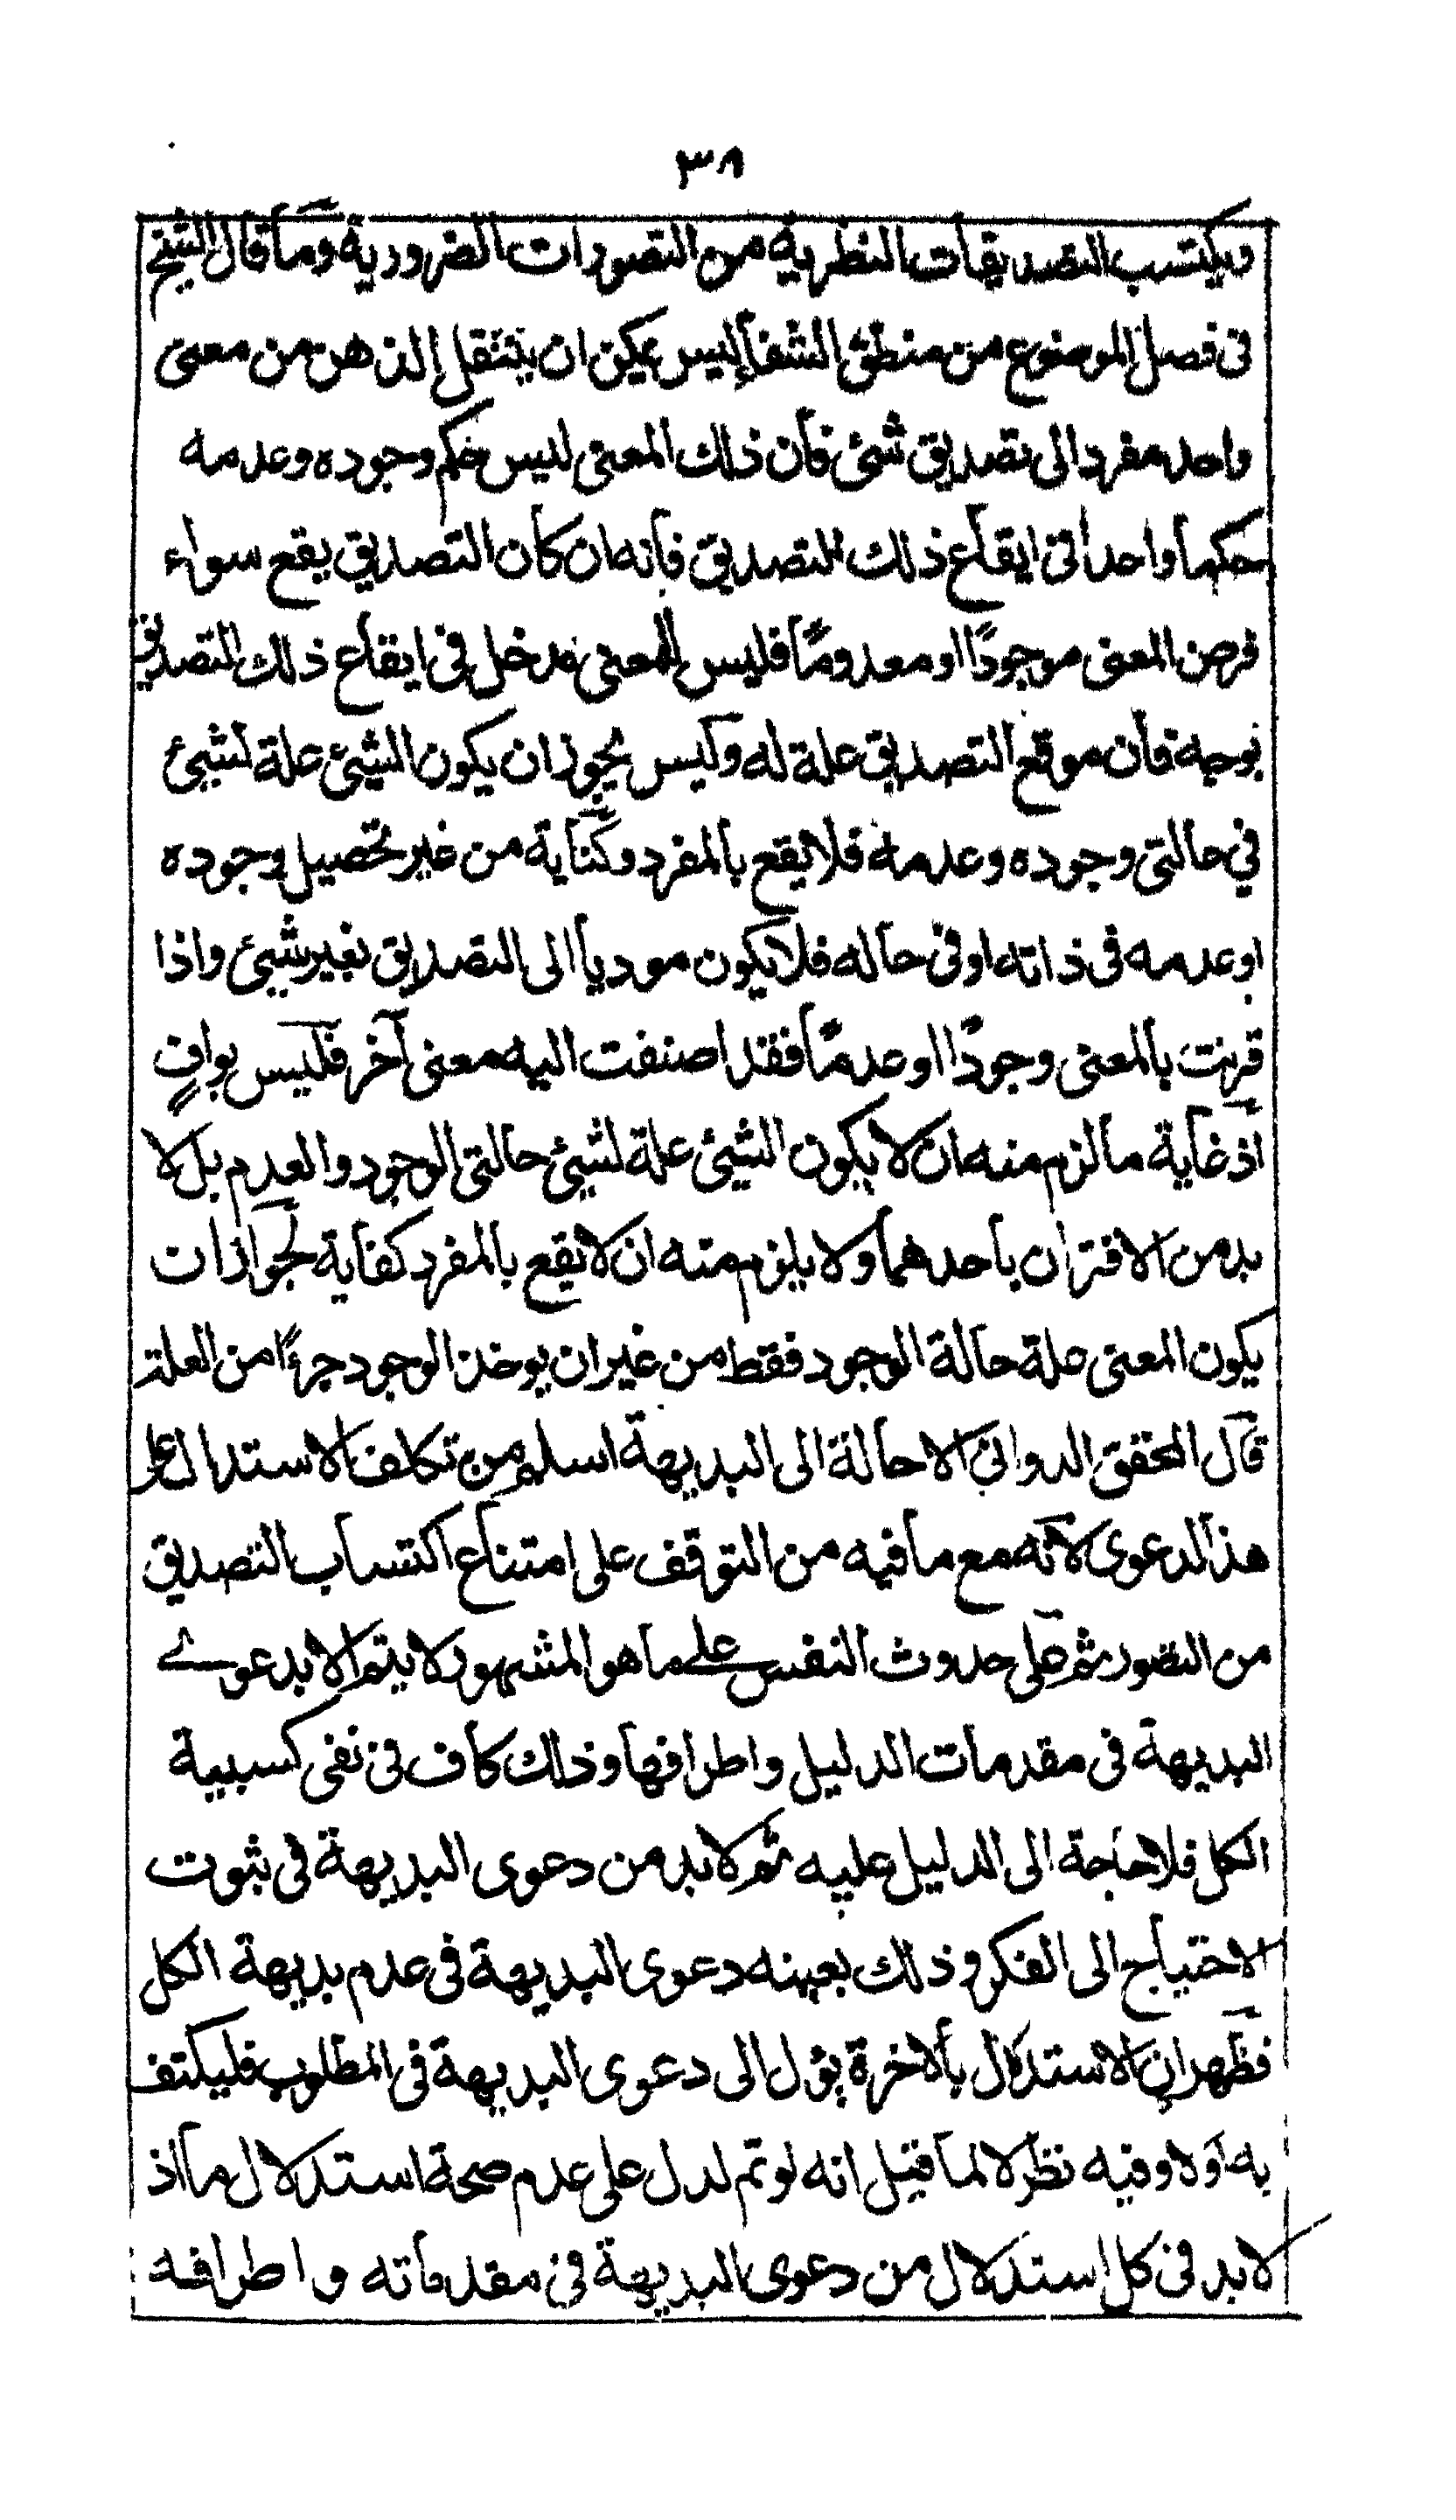 ٣٨
ويكتسب التصديقات النظرية من التصورات الضرورية وما قال الشيخ
في فصل الموضوع من منطق الشفا ليس يمكن ان ينتقل الذهن من معنى
واحد مفرد الى تصديق شئ فان ذلك المعنى ليس حكم وجوده وعدمه
حكما واحدا فى ايقاع ذلك التصديق فانه ان كان التصديق يقع سواء
فرض المعنى موجودًا او معدومًا فليس للمعنى مدخل في ايقاع ذلك التصديق
بوجه فان موقع التصديق علة له وليس يجوز ان يكون الشيئ علة لشيئ
في حالتى وجوده وعدمه فلا يقع بالمفرد كناية من غير تحصيل وجوده
او عدمه فى ذاته او فى حاله فلا يكون موديا الى التصديق بغير شيئ واذا
قرنت بالمعنى وجودًا او عدمًا فقد اضفت اليه معنى آخر فليس بوافٍ
اذ غاية ما لزم منه ان لا يكون الشيئ علة لشيئ حالتى الوجود والعدم بل لا
بد من الاقتران باحدهما ولا يلزم منه ان لا يقع بالمفرد كفاية لجواز ان
يكون المعنى علة حالة الوجود فقط من غير ان يوخذ الوجود جزءًا من العلة
قال المحقق الدوانى الاحالة الى البديهة اسلم من تكلف الاستدلال على
هذا الدعوى لانه مع ما فيه من التوقف على امتناع اكتساب التصديق
من التصور ثم على حدوث النفس على ما هو المشهور لا يتم الا بدعوے
البديهة فى مقدمات الدليل واطرافها وذلك كاف فى نفى كسبية
الكل فلا حاجة الى الدليل عليه ثم لا بد من دعوى البديهة فى ثبوت
الاحتياج الى الفكر وذلك بعينه دعوى البديهة فى عدم بديهة الكل
فظهر ان الاستدلال بالاخرة يؤل الى دعوى البديهة فى المطلوب فليكتف
به اولا وفيه نظر لا لما قيل انه لو تم لدل على عدم صحة استدلال ما اذ
لا بد فى كل استدلال من دعوى البديهة فى مقدماته واطرافه